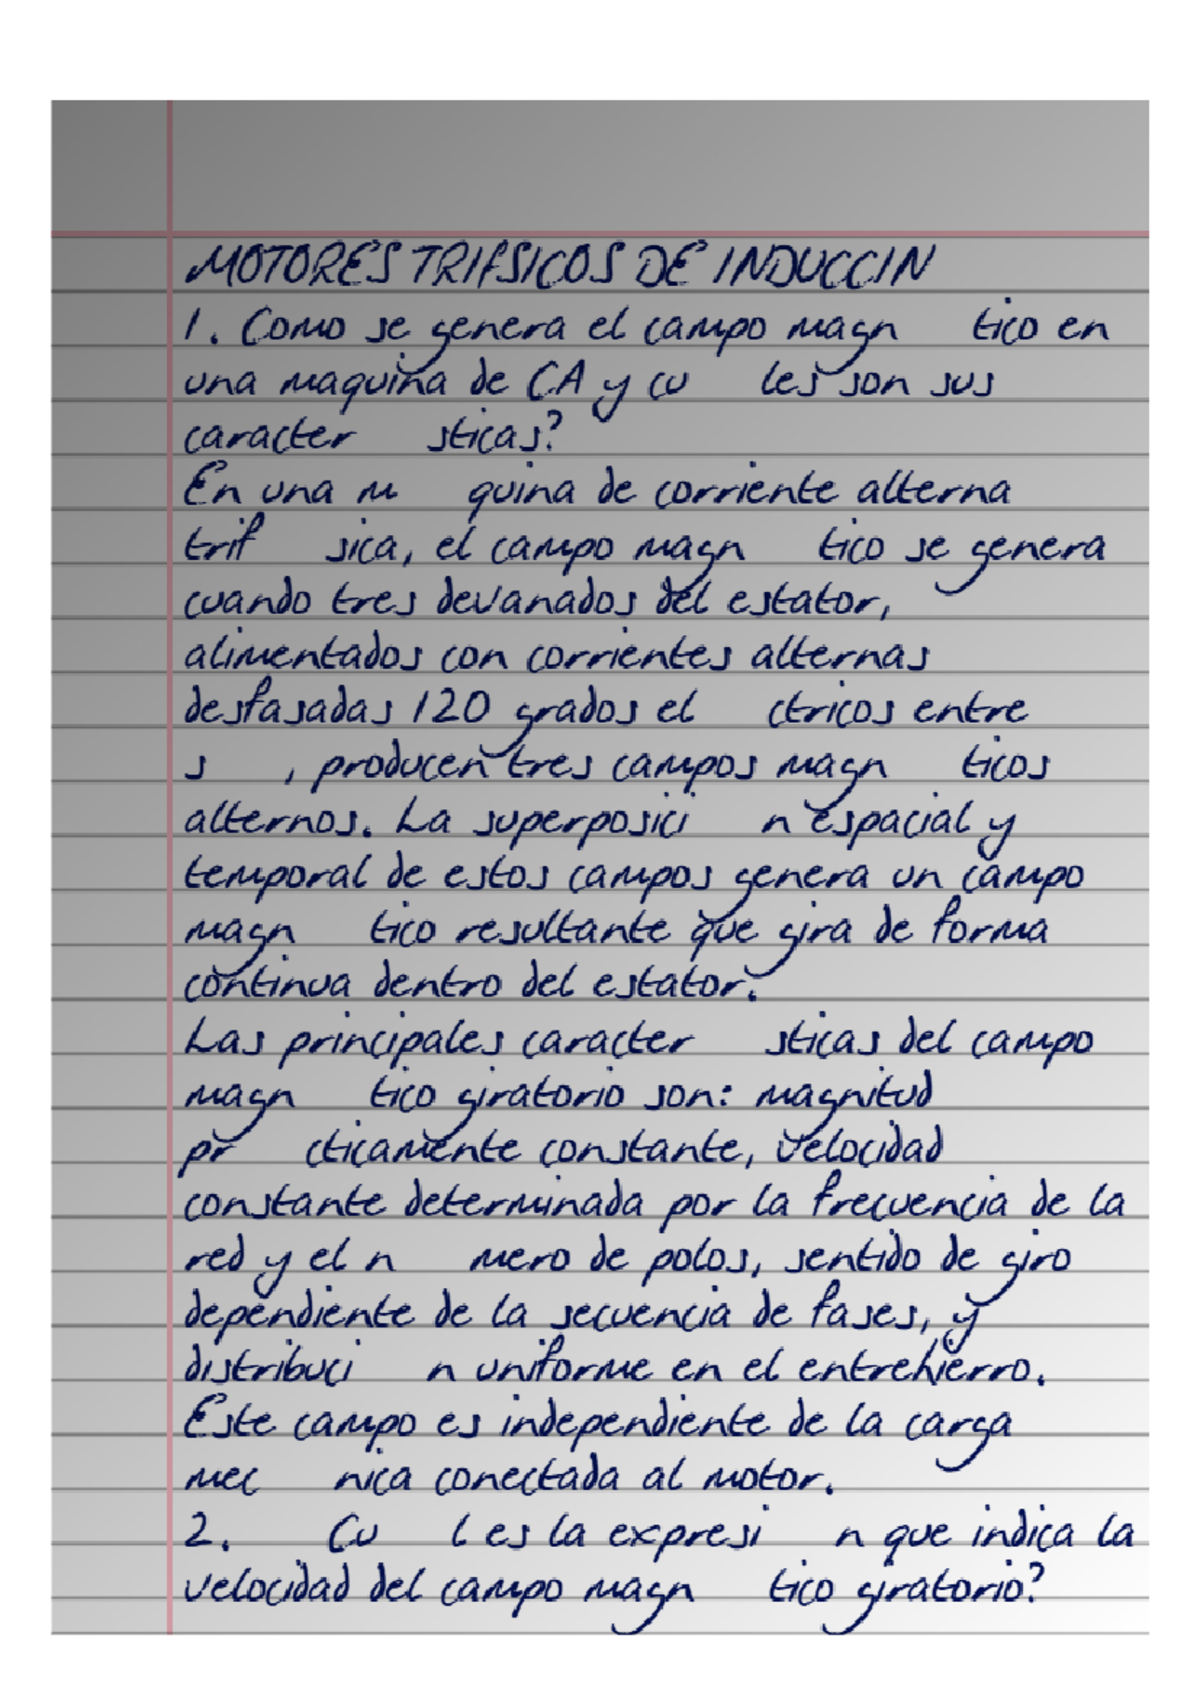 MOTORES TRIFSICOS DE INDUCCIN
1. Como se genera el campo magn tico en
una maquina de CA y cu les son sus
caracter sticas?
En una m quina de corriente alterna
trif sica, el campo magn tico se genera
cuando tres devanados del estator,
alimentados con corrientes alternas
desfasadas 120 grados el ctricos entre
s , producen tres campos magn ticos
alternos. La superposici n espacial y
temporal de estos campos genera un campo
magn tico resultante que gira de forma
continua dentro del estator.
Las principales caracter sticas del campo
magn tico giratorio son: magnitud
pr cticamente constante, velocidad
constante determinada por la frecuencia de la
red y el n mero de polos, sentido de giro
dependiente de la secuencia de fases, y
distribuci n uniforme en el entrehierro.
Este campo es independiente de la carga
mec nica conectada al motor.
2. Cu l es la expresi n que indica la
velocidad del campo magn tico giratorio?